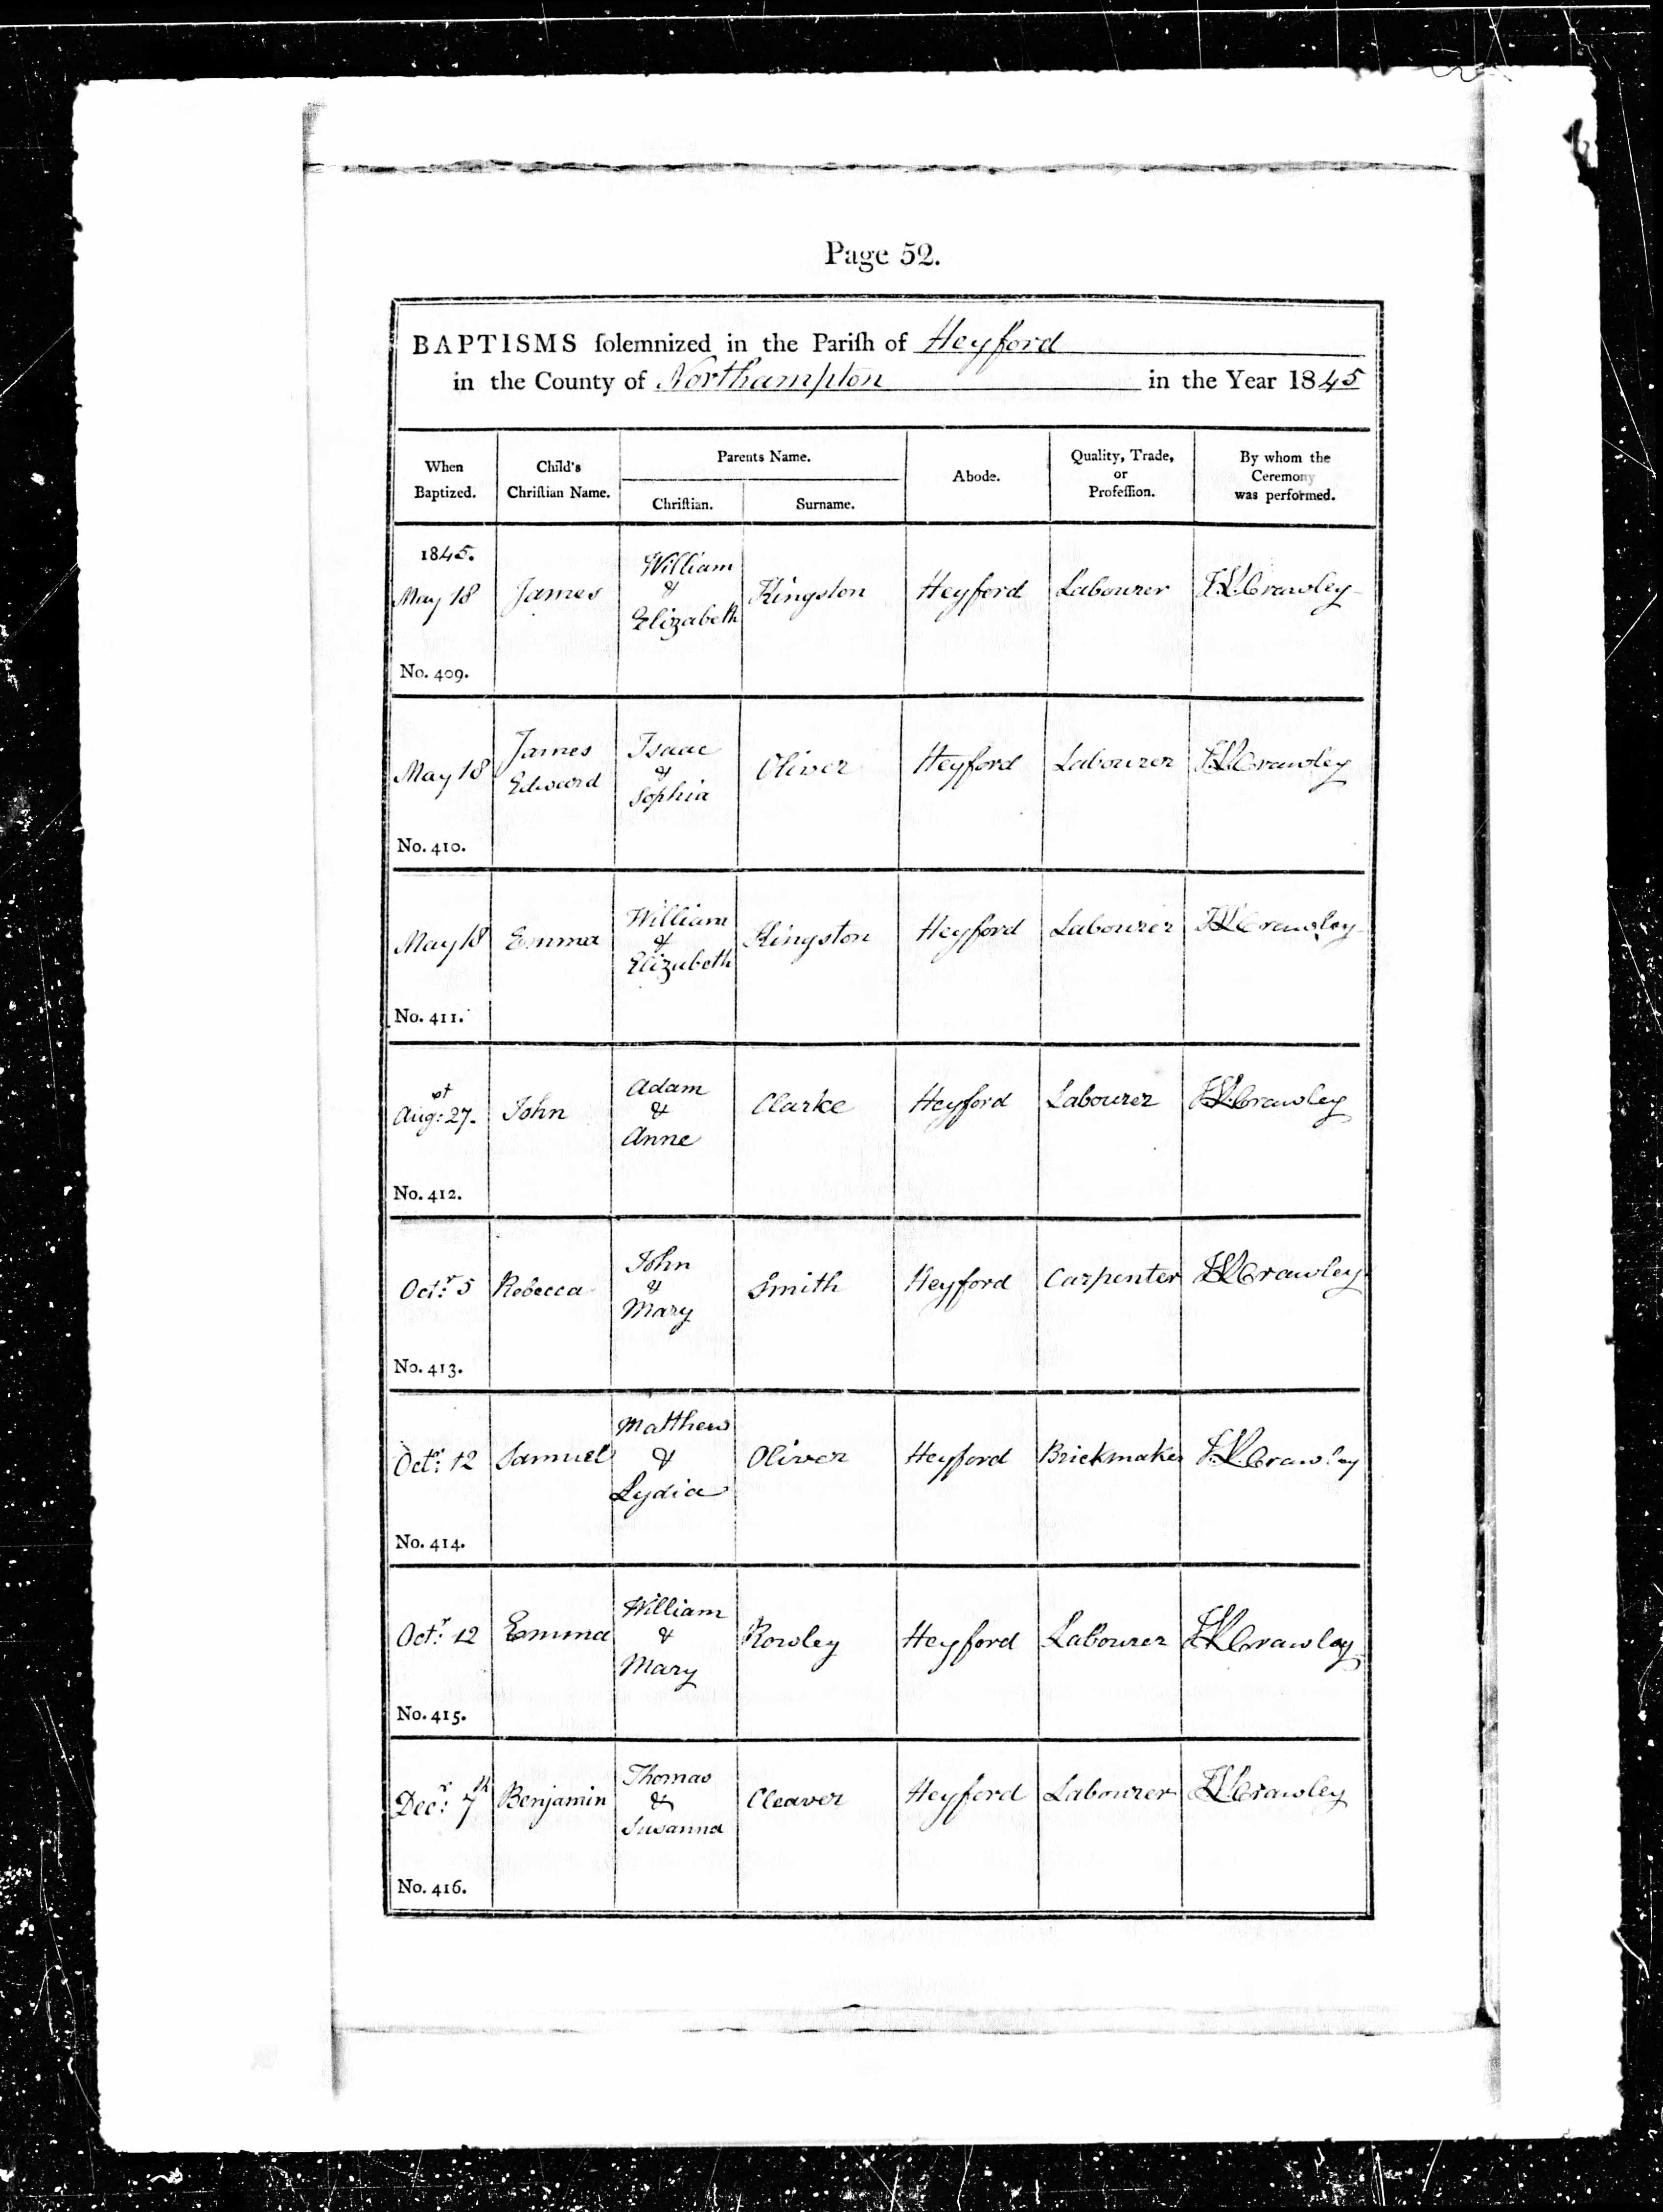 Page 52.
BAPTISMS ſolemnized in the Pariſh of Heyford
in the County of Northampton in the Year 1845
When Baptized. Child's Chriſtian Name. Parents Name. Chriſtian. Surname. Abode. Quality, Trade, or Profeſſion. By whom the Ceremony was performed.
1845.
May 18 James William & Elizabeth Kingston Heyford Labourer Crawley
No. 409.
May 18 James Edward Isaac & Sophia Oliver Heyford Labourer Crawley
No. 410.
May 18 Emma William & Elizabeth Kingston Heyford Labourer Crawley
No. 411.
Augst: 27. John Adam & Anne Clarke Heyford Labourer Crawley
No. 412.
Octr: 5 Rebecca John & Mary Smith Heyford Carpenter Crawley
No. 413.
Octr: 12 Samuel Matthew & Lydia Oliver Heyford Brickmaker Crawley
No. 414.
Octr: 12 Emma William & Mary Rowley Heyford Labourer Crawley
No. 415.
Decr: 7th Benjamin Thomas & Susanna Cleaver Heyford Labourer Crawley
No. 416.